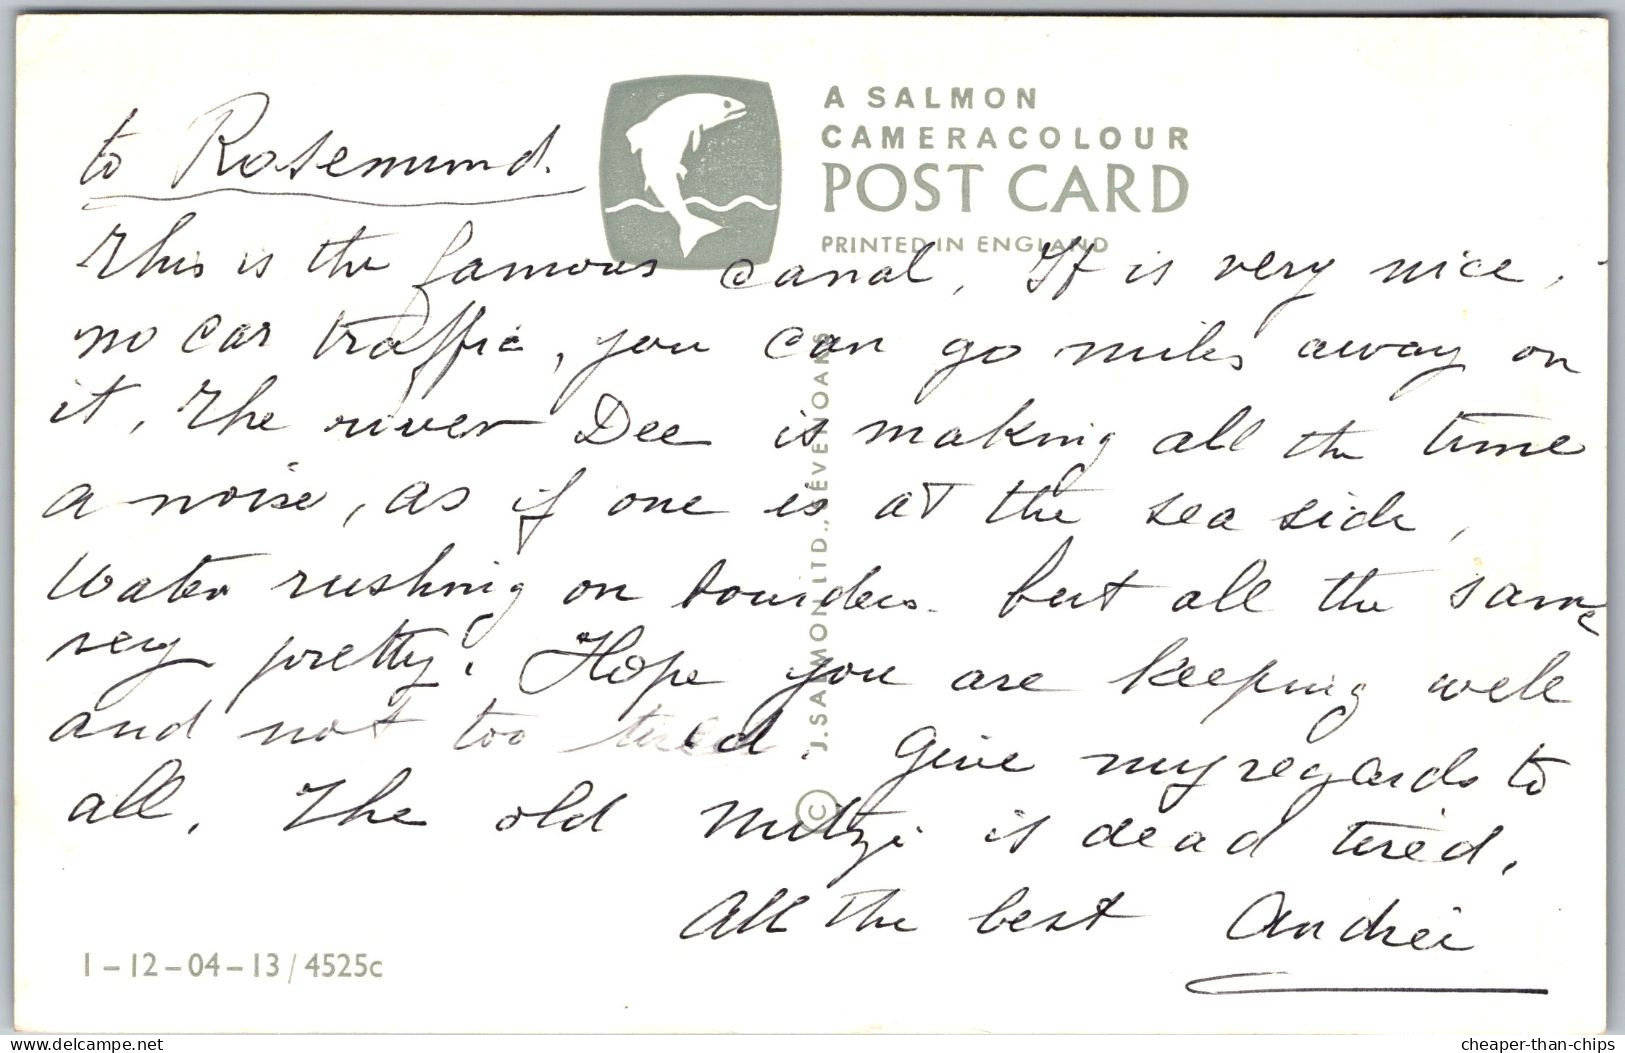 to Rosemund.
A SALMON
CAMERACOLOUR
POST CARD
PRINTED IN ENGLAND
This is the famous canal, It is very nice,
no car traffic, you can go miles away on
it, The river Dee is making all the time
a noise, as if one is at the sea side,
Water rushing on bourders but all the same
very pretty. Hope you are keeping well
and not too tired. Give my regards to
all. The old Mitzi is dead tired.
All the best Andrei
J. SALMON LTD., SEVENOAKS
©
1-12-04-13/4525c
www.delcampe.net
cheaper-than-chips